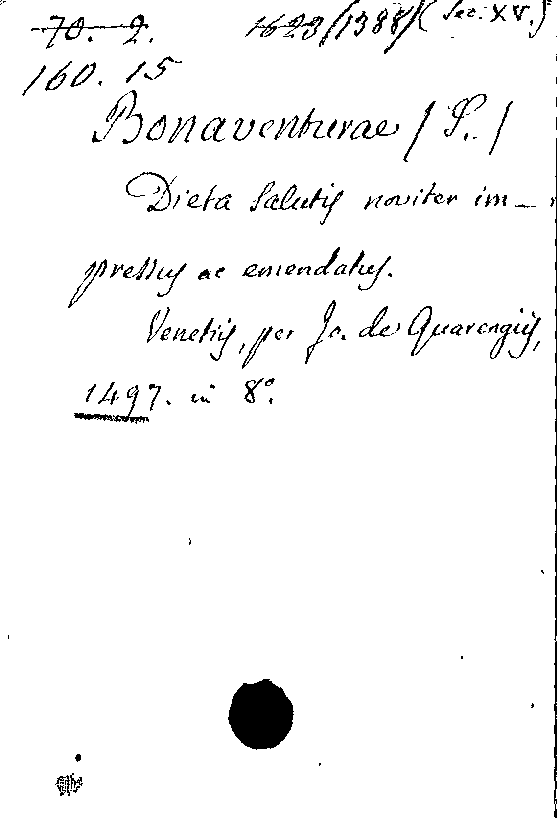 70. 2. 1623/1388/(Sec. XV.)
160. 15
Bonaventurae /S./
Dieta Salutis noviter im-
pressus ac emendatus.
Venetiis, per Jo. de Quarengiis,
1497. in 8°.